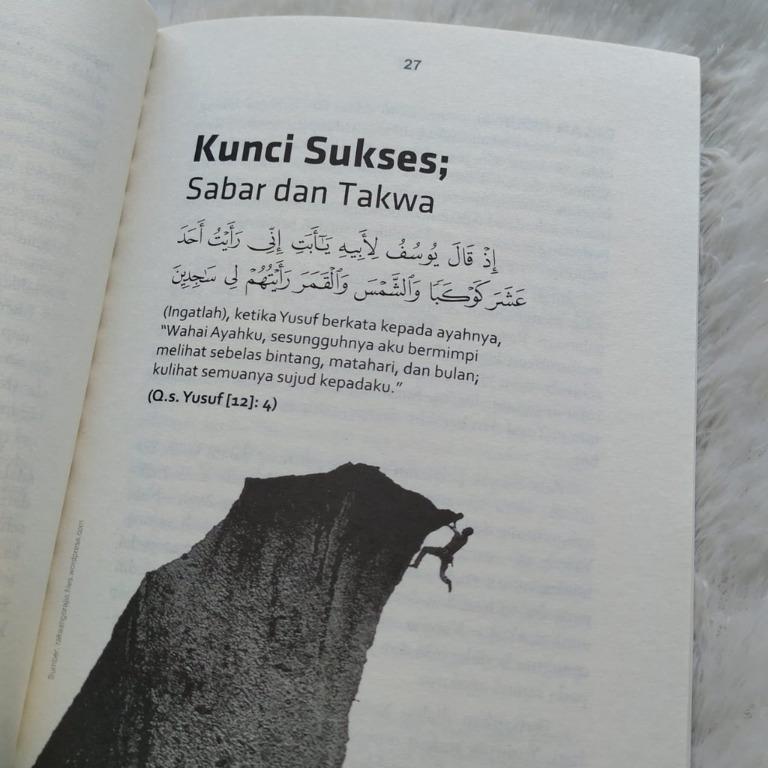 27
Kunci Sukses;
Sabar dan Takwa
إِذْ قَالَ يُوسُفُ لِأَبِيهِ يَٰٓأَبَتِ إِنِّى رَأَيْتُ أَحَدَ
عَشَرَ كَوْكَبًا وَٱلشَّمْسَ وَٱلْقَمَرَ رَأَيْتُهُمْ لِى سَٰجِدِينَ
(Ingatlah), ketika Yusuf berkata kepada ayahnya,
"Wahai Ayahku, sesungguhnya aku bermimpi
melihat sebelas bintang, matahari, dan bulan;
kulihat semuanya sujud kepadaku."
(Q.s. Yusuf [12]: 4)
Sumber: